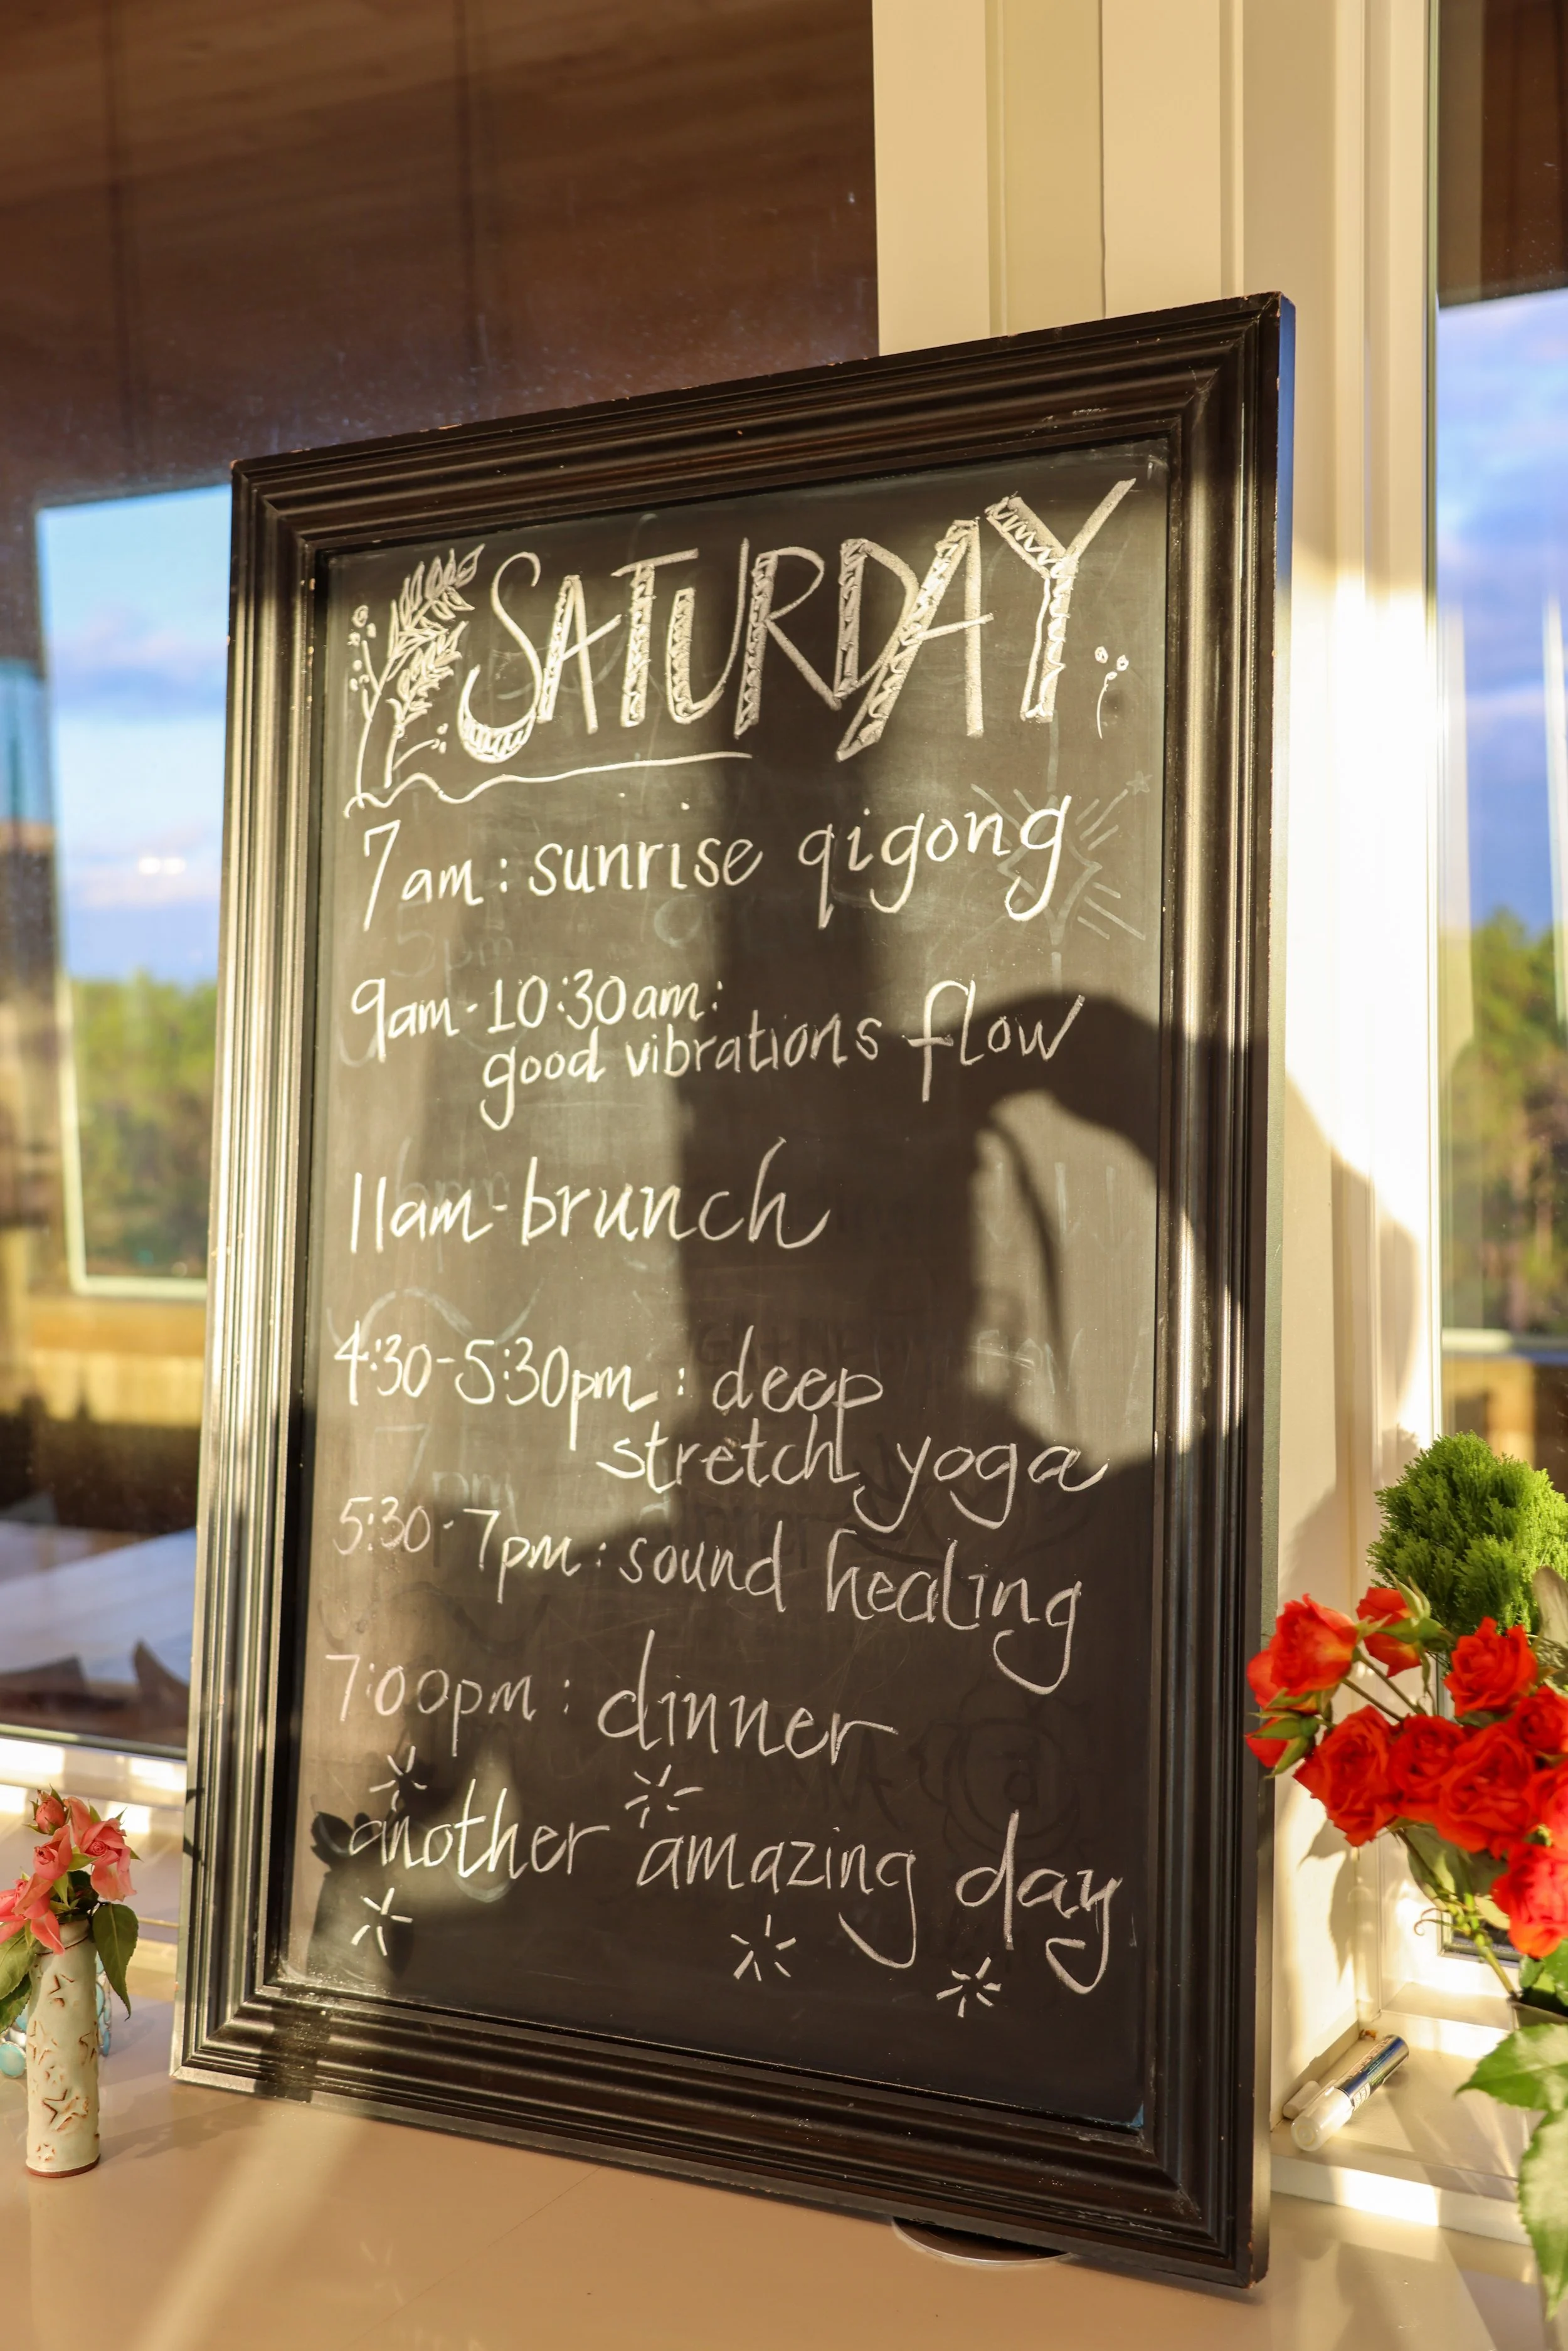 SATURDAY
7am: sunrise qigong
9am-10:30am:
good vibrations flow
11am-brunch
4:30-5:30pm: deep
stretch yoga
5:30-7pm: sound healing
7:00pm: dinner
another amazing day